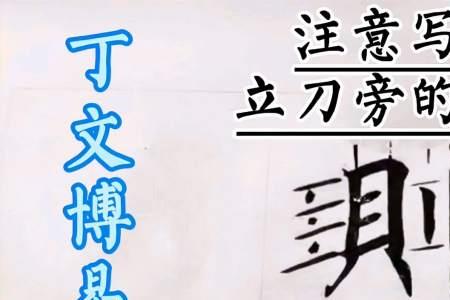 注意写
立刀旁的
丁文博